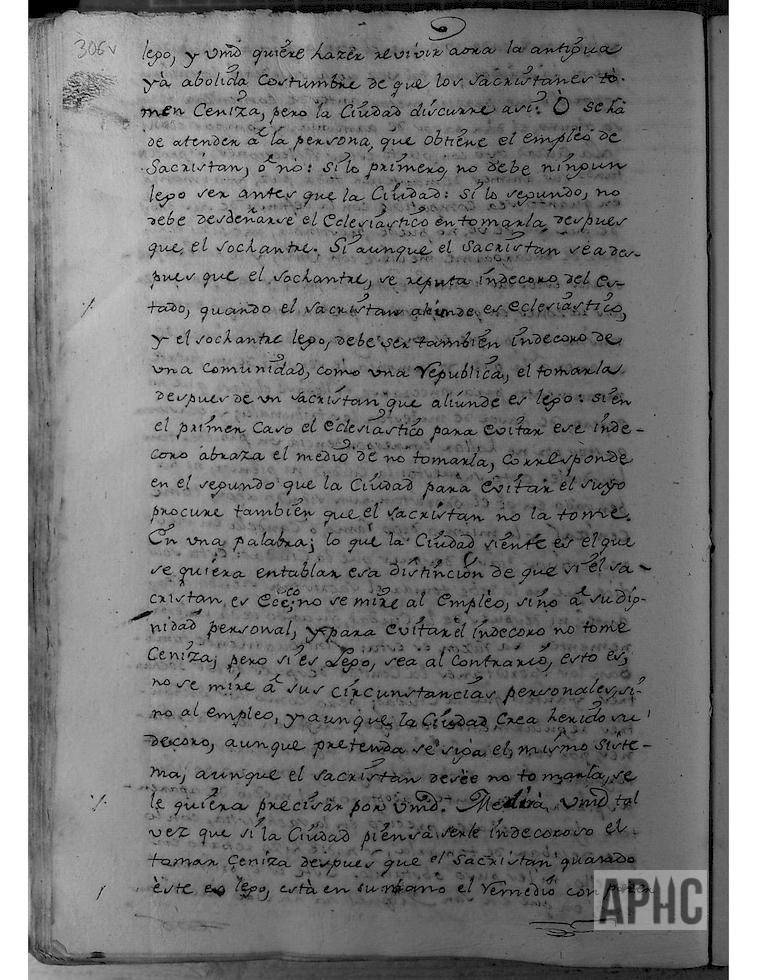 306v
lego, y vmd quiere hazer revivir aora la antigua
yà abolida Costumbre de que los sacristanes to-
men Ceniza, pero la Ciudad discurre asi: O se há
de atender â la persona, que obtiene el empleo de
Sacristan, ô no: si lo primero, no debe ningun
lego ser antes que la Ciudad: si lo segundo, no
debe desdeñarse el Eclesiastico en tomarla despues
que el sochantre. Si aunque el Sacristan sea des-
pues que el sochantre, se reputa indecoro del es-
tado, quando el sacristan aliunde es eclesiastico,
y el sochantre lego, debe ser tambien indecoro de
una Comunidad, como una Republica, el tomarla
despues de un sacristan que aliunde es lego: si en
el primer Caso el Eclesiastico para evitar ese inde-
coro abraza el medio de no tomarla, corresponde
en el segundo que la Ciudad para evitar el suyo
procure tambien que el sacristan no la tome.
En una palabra; lo que la Ciudad siente es el que
se quiera entablar esa distincion de que si el sa-
cristan es Ecc.co no se mire al Empleo, sino â su dig-
nidad personal, y para Evitar el indecoro no tome
Ceniza; pero si es Lego, sea al Contrario, esto es,
no se mire â sus circunstancias personales, si-
no al empleo, y aunque la Ciudad Crea herido su
decoro, aunque pretenda se siga el mismo siste-
ma, aunque el sacristan deseè no tomarla, se
le quiera precisar por vmd. Me dirà vmd tal
vez que si la Ciudad piensa serle indecoroso el
tomar Ceniza despues que el Sacristan quando
èste es lego, està en su mano el remedio con
APHC